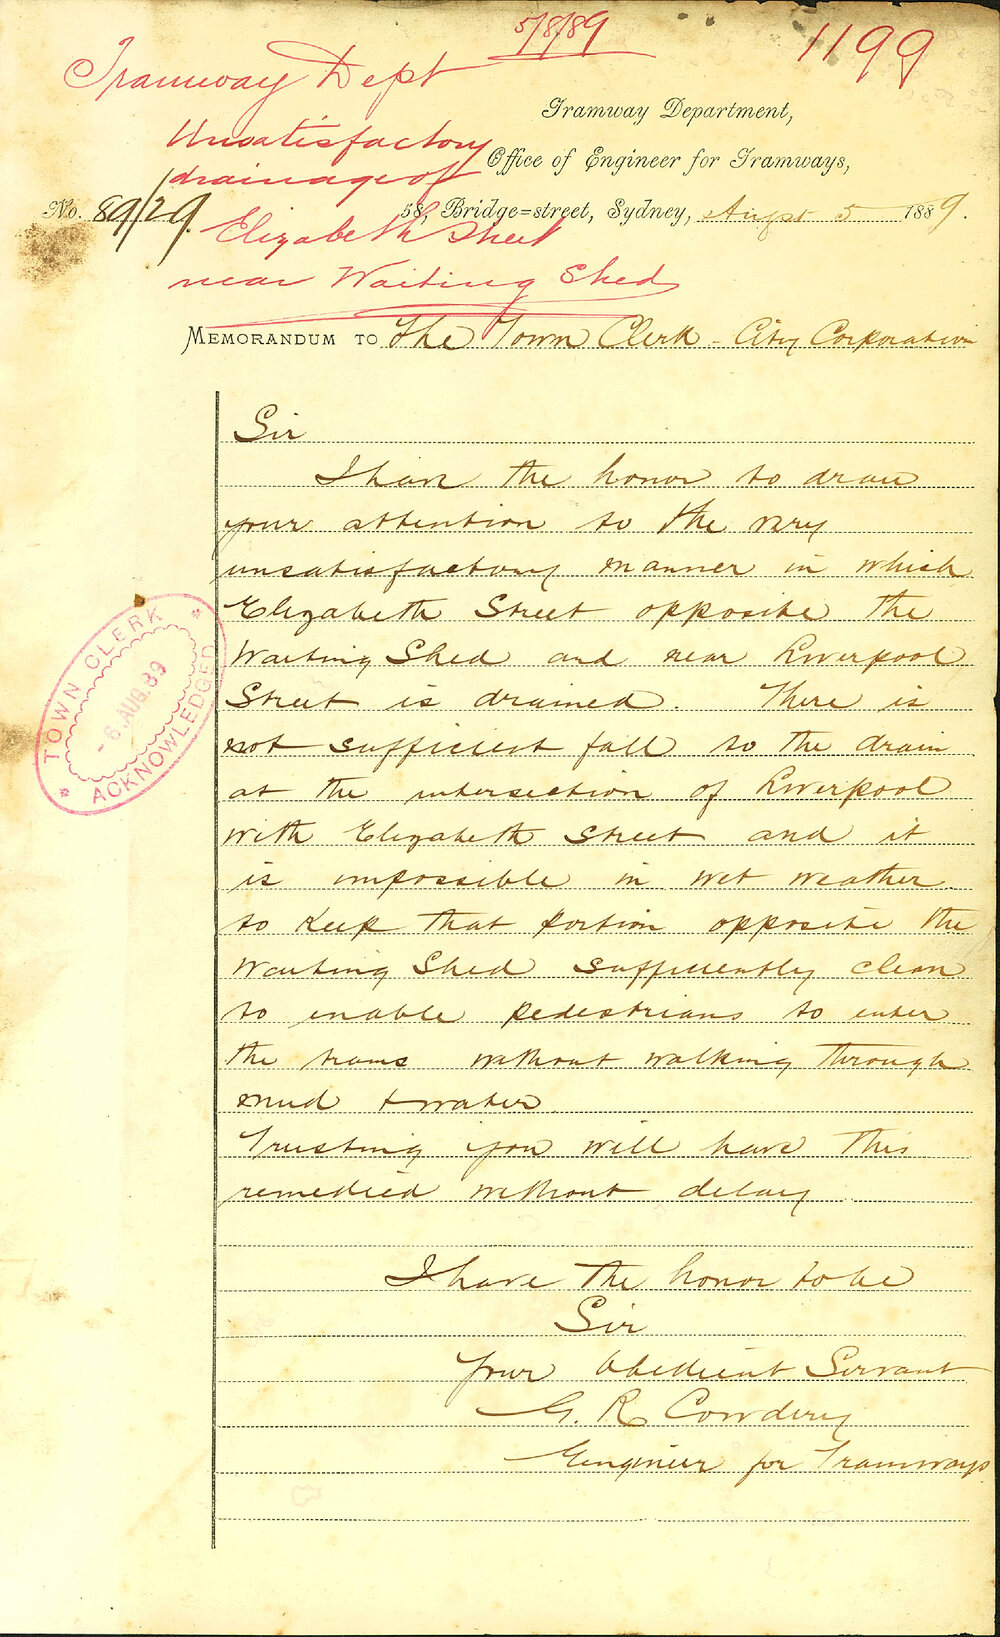 5/8/89
1199
Tramway Dept
Unsatisfactory
drainage of
Elizabeth Street
near Waiting Shed
Tramway Department,
Office of Engineer for Tramways,
No. 89/29.
58, Bridge=street, Sydney, Augst 5 1889.
MEMORANDUM TO The Town Clerk - City Corporation
Sir
I have the honor to draw
your attention to the very
unsatisfactory manner in which
Elizabeth Street opposite the
Waiting Shed and near Liverpool
Street is drained. There is
not sufficient fall to the drain
at the intersection of Liverpool
with Elizabeth Street and it
is impossible in wet weather
to keep that portion opposite the
Waiting Shed sufficiently clean
to enable pedestrians to enter
the trams without walking through
mud + water.
Trusting you will have this
remedied without delay.
I have the honor to be
Sir
Your Obedient Servant
G. R. Cowdery
Engineer for Tramways
* TOWN CLERK *
-6.AUG.89
ACKNOWLEDGED